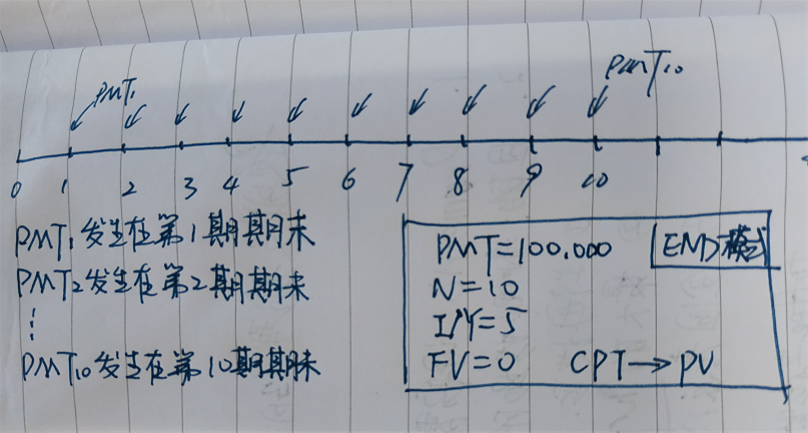 PMT₁ PMT₁₀
0 1 2 3 4 5 6 7 8 9 10
PMT₁发生在第1期期末
PMT₂发生在第2期期末
⋮
PMT₁₀发生在第10期期末
PMT=100,000 END模式
N=10
I/Y=5
FV=0 CPT→PV